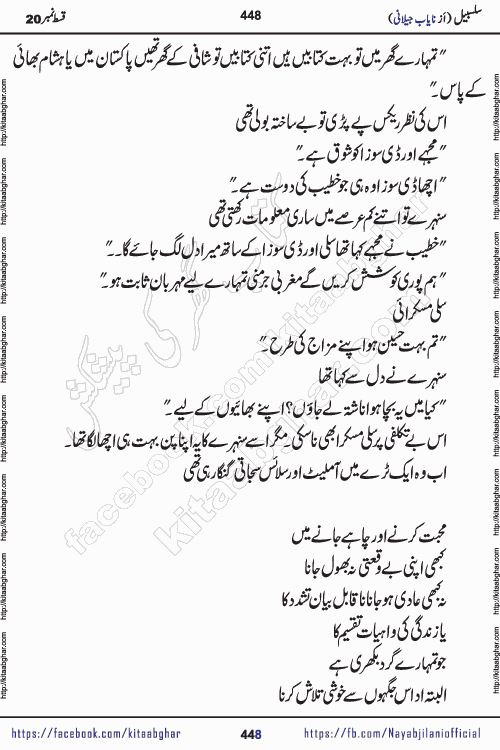 سلسبیل (از نایاب جیلانی)
448
قسط نمبر 20
"تمہارے گھر میں تو بہت کتابیں ہیں اتنی کتابیں تو شافی کے گھر تھیں پاکستان میں یا ہشام بھائی
کے پاس۔"
اس کی نظر ریکس پے پڑی تو بے ساختہ بولی تھی
"مجھے اور ڈی سوزا کو شوق ہے۔"
"اچھا ڈی سوزا وہ ہی جو خطیب کی دوست ہے۔"
سنہرے تو اتنے کم عرصے میں ساری معلومات رکھتی تھی
"خطیب نے مجھے کہا تھا سلی اور ڈی سوزا کے ساتھ میرا دل لگ جائے گا۔۔"
"ہم پوری کوشش کریں گے مغربی جرمنی تمہارے لیے مہربان ثابت ہو۔"
سلی مسکرائی
"تم بہت حسین ہو اپنے مزاج کی طرح۔"
سنہرے نے دل سے کہا تھا
"کیا میں یہ بچا ہوا ناشتہ لے جاؤں؟ اپنے بھائیوں کے لیے۔"
اس بے تکلفی پر سلی مسکرا بھی نا سکی مگر اسے سنہرے کا یہ اپنا پن بہت ہی اچھا لگا تھا۔
اب وہ ایک ٹرے میں آملیٹ اور سلائس سجاتی گنگنا رہی تھی
محبت کرنے اور چاہے جانے میں
کبھی اپنی بے وقعتی نہ بھول جانا
نہ کبھی عادی ہو جانا ناقابل بیان تشدد کا
یا زندگی کی واہیات تقسیم کا
جو تمہارے گرد بکھری ہے
البتہ اداس جگہوں سے خوشی تلاش کرنا
https://facebook.com/kitaabghar
448
https://fb.com/Nayabjilaniofficial
http://kitaabghar.com
کتاب گھر کی پیشکش
kitaabghar.com
facebook.com/kitaabghar